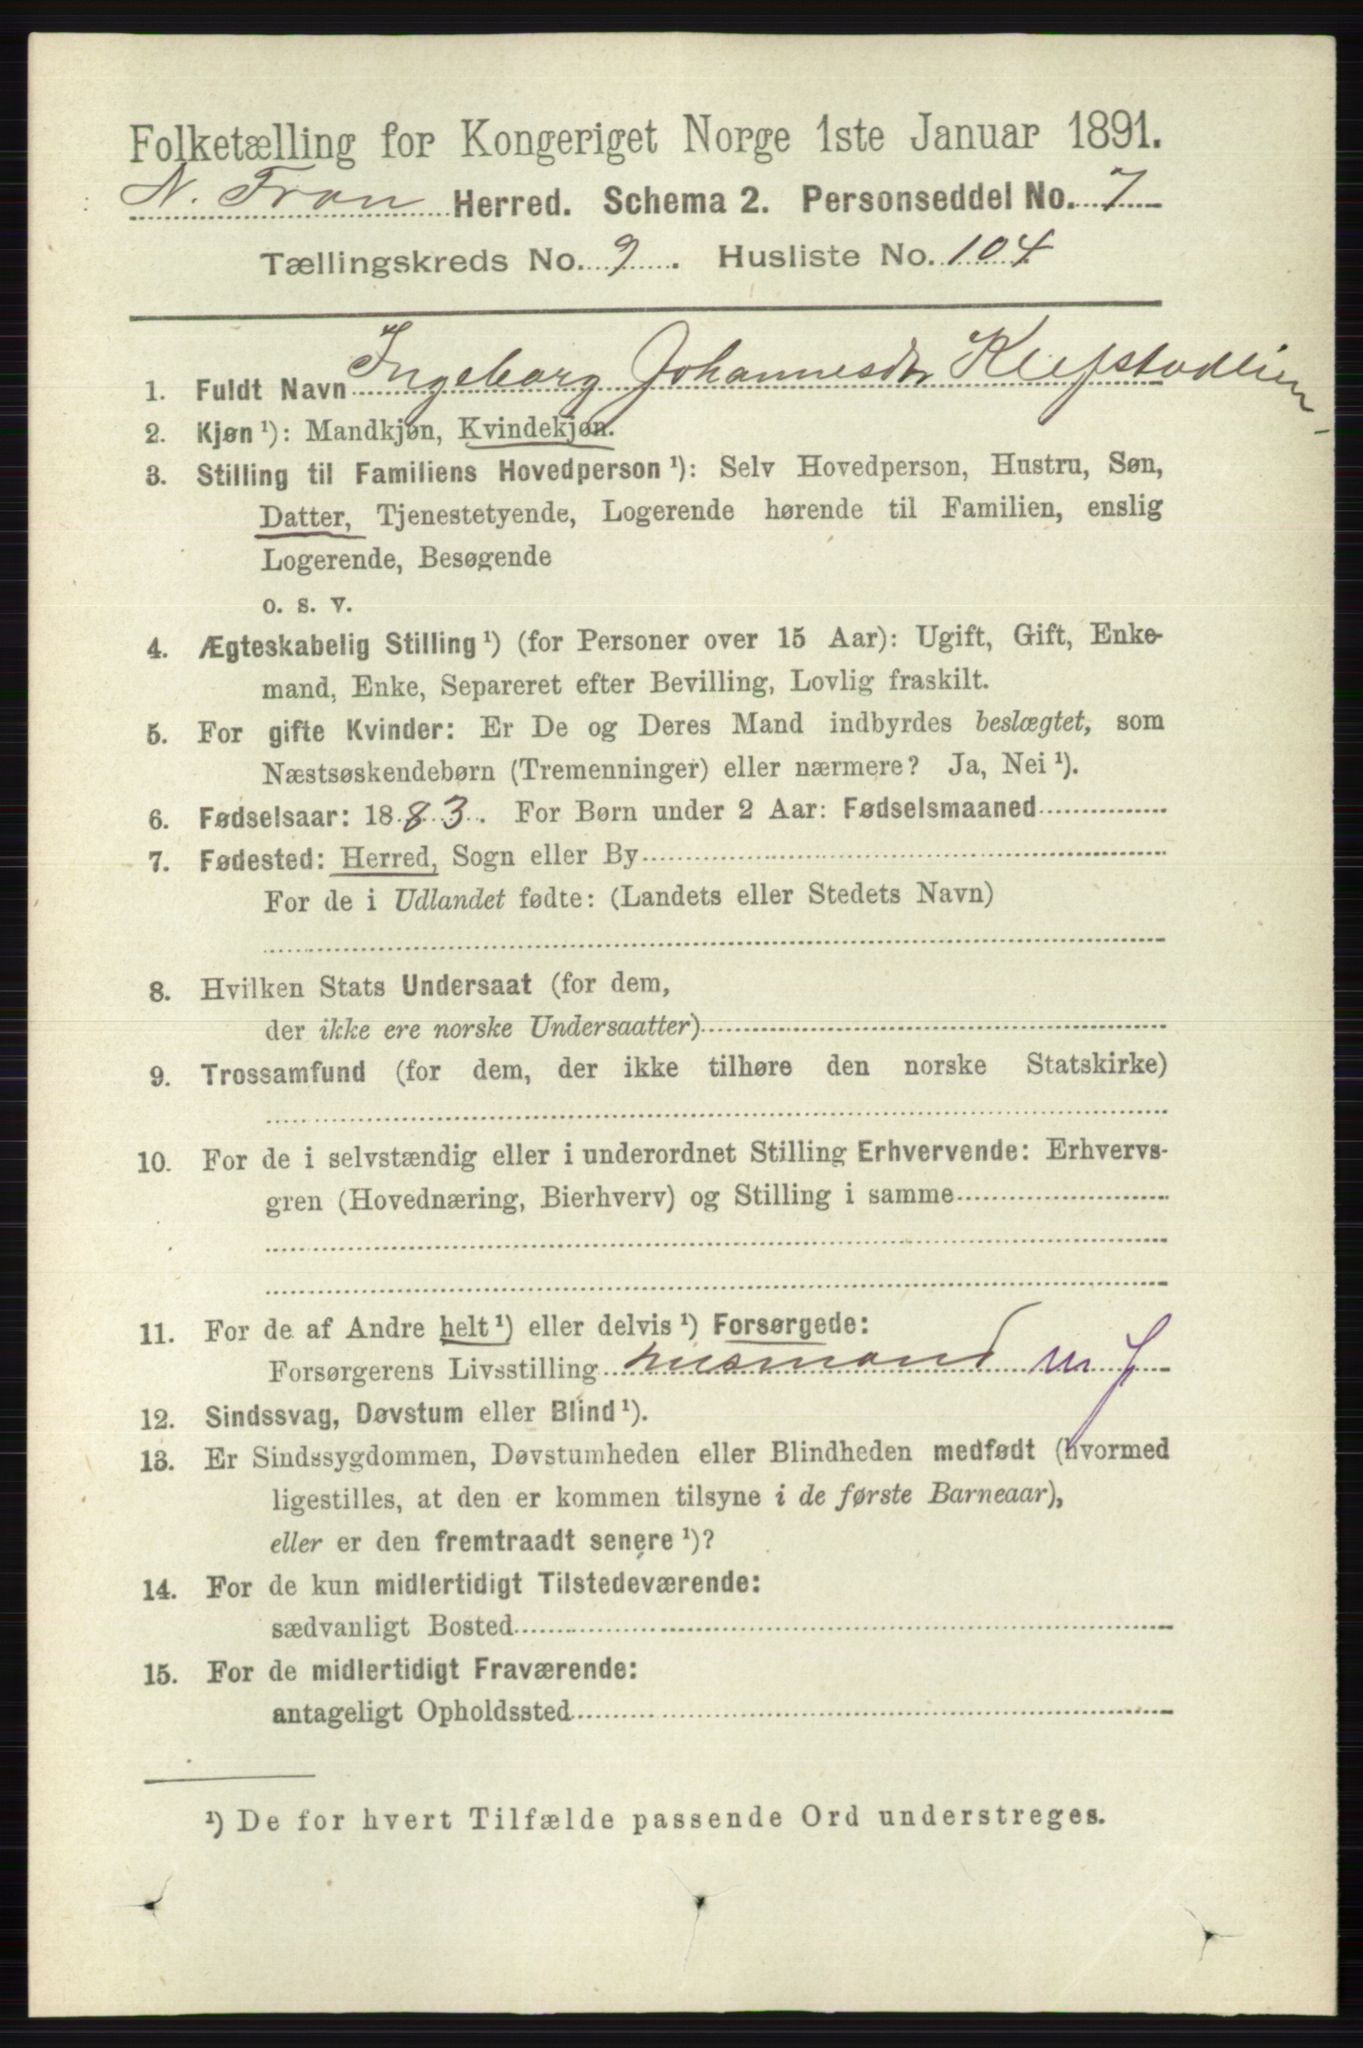 Folketælling for Kongeriget Norge 1ste Januar 1891.
N. Fron Herred. Schema 2. Personseddel No. 7
Tællingskreds No. 9. Husliste No. 104
1. Fuldt Navn Ingeborg Johannesdtr Klefstadlien
2. Kjøn ¹): Mandkjøn, Kvindekjøn.
3. Stilling til Familiens Hovedperson ¹): Selv Hovedperson, Hustru, Søn,
Datter, Tjenestetyende, Logerende hørende til Familien, enslig
Logerende, Besøgende
o. s. v.
4. Ægteskabelig Stilling ¹) (for Personer over 15 Aar): Ugift, Gift, Enke-
mand, Enke, Separeret efter Bevilling, Lovlig fraskilt.
5. For gifte Kvinder: Er De og Deres Mand indbyrdes beslægtet, som
Næstsøskendebørn (Tremenninger) eller nærmere? Ja, Nei ¹).
6. Fødselsaar: 1883. For Børn under 2 Aar: Fødselsmaaned
7. Fødested: Herred, Sogn eller By
For de i Udlandet fødte: (Landets eller Stedets Navn)
8. Hvilken Stats Undersaat (for dem,
der ikke ere norske Undersaatter)
9. Trossamfund (for dem, der ikke tilhøre den norske Statskirke)
10. For de i selvstændig eller i underordnet Stilling Erhvervende: Erhvervs-
gren (Hovednæring, Bierhverv) og Stilling i samme
11. For de af Andre helt ¹) eller delvis ¹) Forsørgede:
Forsørgerens Livsstilling husmand m J
12. Sindssvag, Døvstum eller Blind ¹).
13. Er Sindssygdommen, Døvstumheden eller Blindheden medfødt (hvormed
ligestilles, at den er kommen tilsyne i de første Barneaar),
eller er den fremtraadt senere ¹)?
14. For de kun midlertidigt Tilstedeværende:
sædvanligt Bosted
15. For de midlertidigt Fraværende:
antageligt Opholdssted
¹) De for hvert Tilfælde passende Ord understreges.